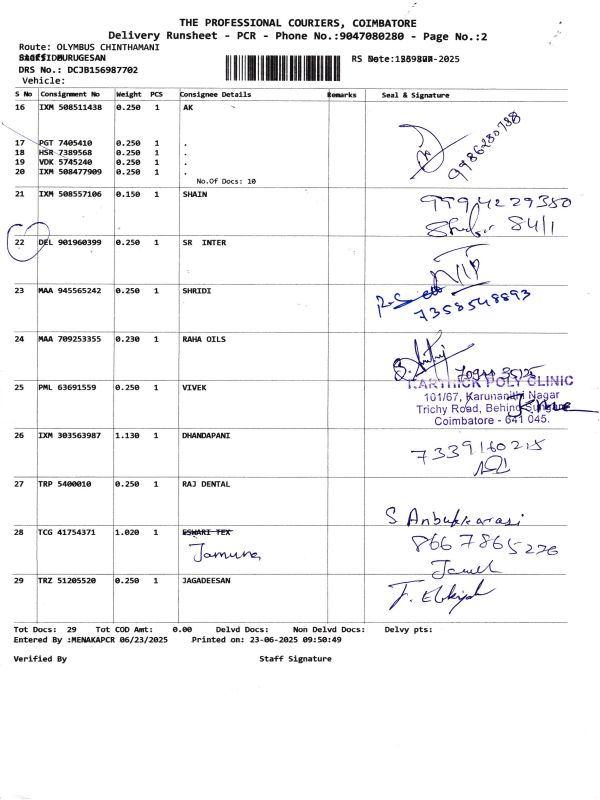 THE PROFESSIONAL COURIERS, COIMBATORE
Delivery Runsheet - PCR - Phone No.:9047080280 - Page No.:2
Route: OLYMBUS CHINTHAMANI
RS Date: -2025
DRS No.: DCJB156987702
Vehicle:
S No Consignment No Weight PCS Consignee Details Remarks Seal & Signature
16 IXM 508511438 0.250 1 AK
9986280738
17 PGT 7405410 0.250 1 .
18 HSR 7389568 0.250 1 .
19 VDK 5745240 0.250 1 .
20 IXM 508477909 0.250 1 .
No.Of Docs: 10
21 IXM 508557106 0.150 1 SHAIN
9994229350
84/1
22 DEL 901960399 0.250 1 SR INTER
23 MAA 945565242 0.250 1 SHRIDI
7358548893
24 MAA 709253355 0.230 1 RAHA OILS
25 PML 63691559 0.250 1 VIVEK
KARTHICK POLY CLINIC
101/67, Karunanithi Nagar
Trichy Road, Behind Sungam
Coimbatore - 641 045.
26 IXM 303563987 1.130 1 DHANDAPANI
7339160215
27 TRP 5400010 0.250 1 RAJ DENTAL
S Anbukkarasi
28 TCG 41754371 1.020 1 ESWARI TEX
Jamuna
8667865226
29 TRZ 51205520 0.250 1 JAGADEESAN
Tot Docs: 29 Tot COD Amt: 0.00 Delvd Docs: Non Delvd Docs: Delvy pts:
Entered By :MENAKAPCR 06/23/2025 Printed on: 23-06-2025 09:50:49
Verified By Staff Signature